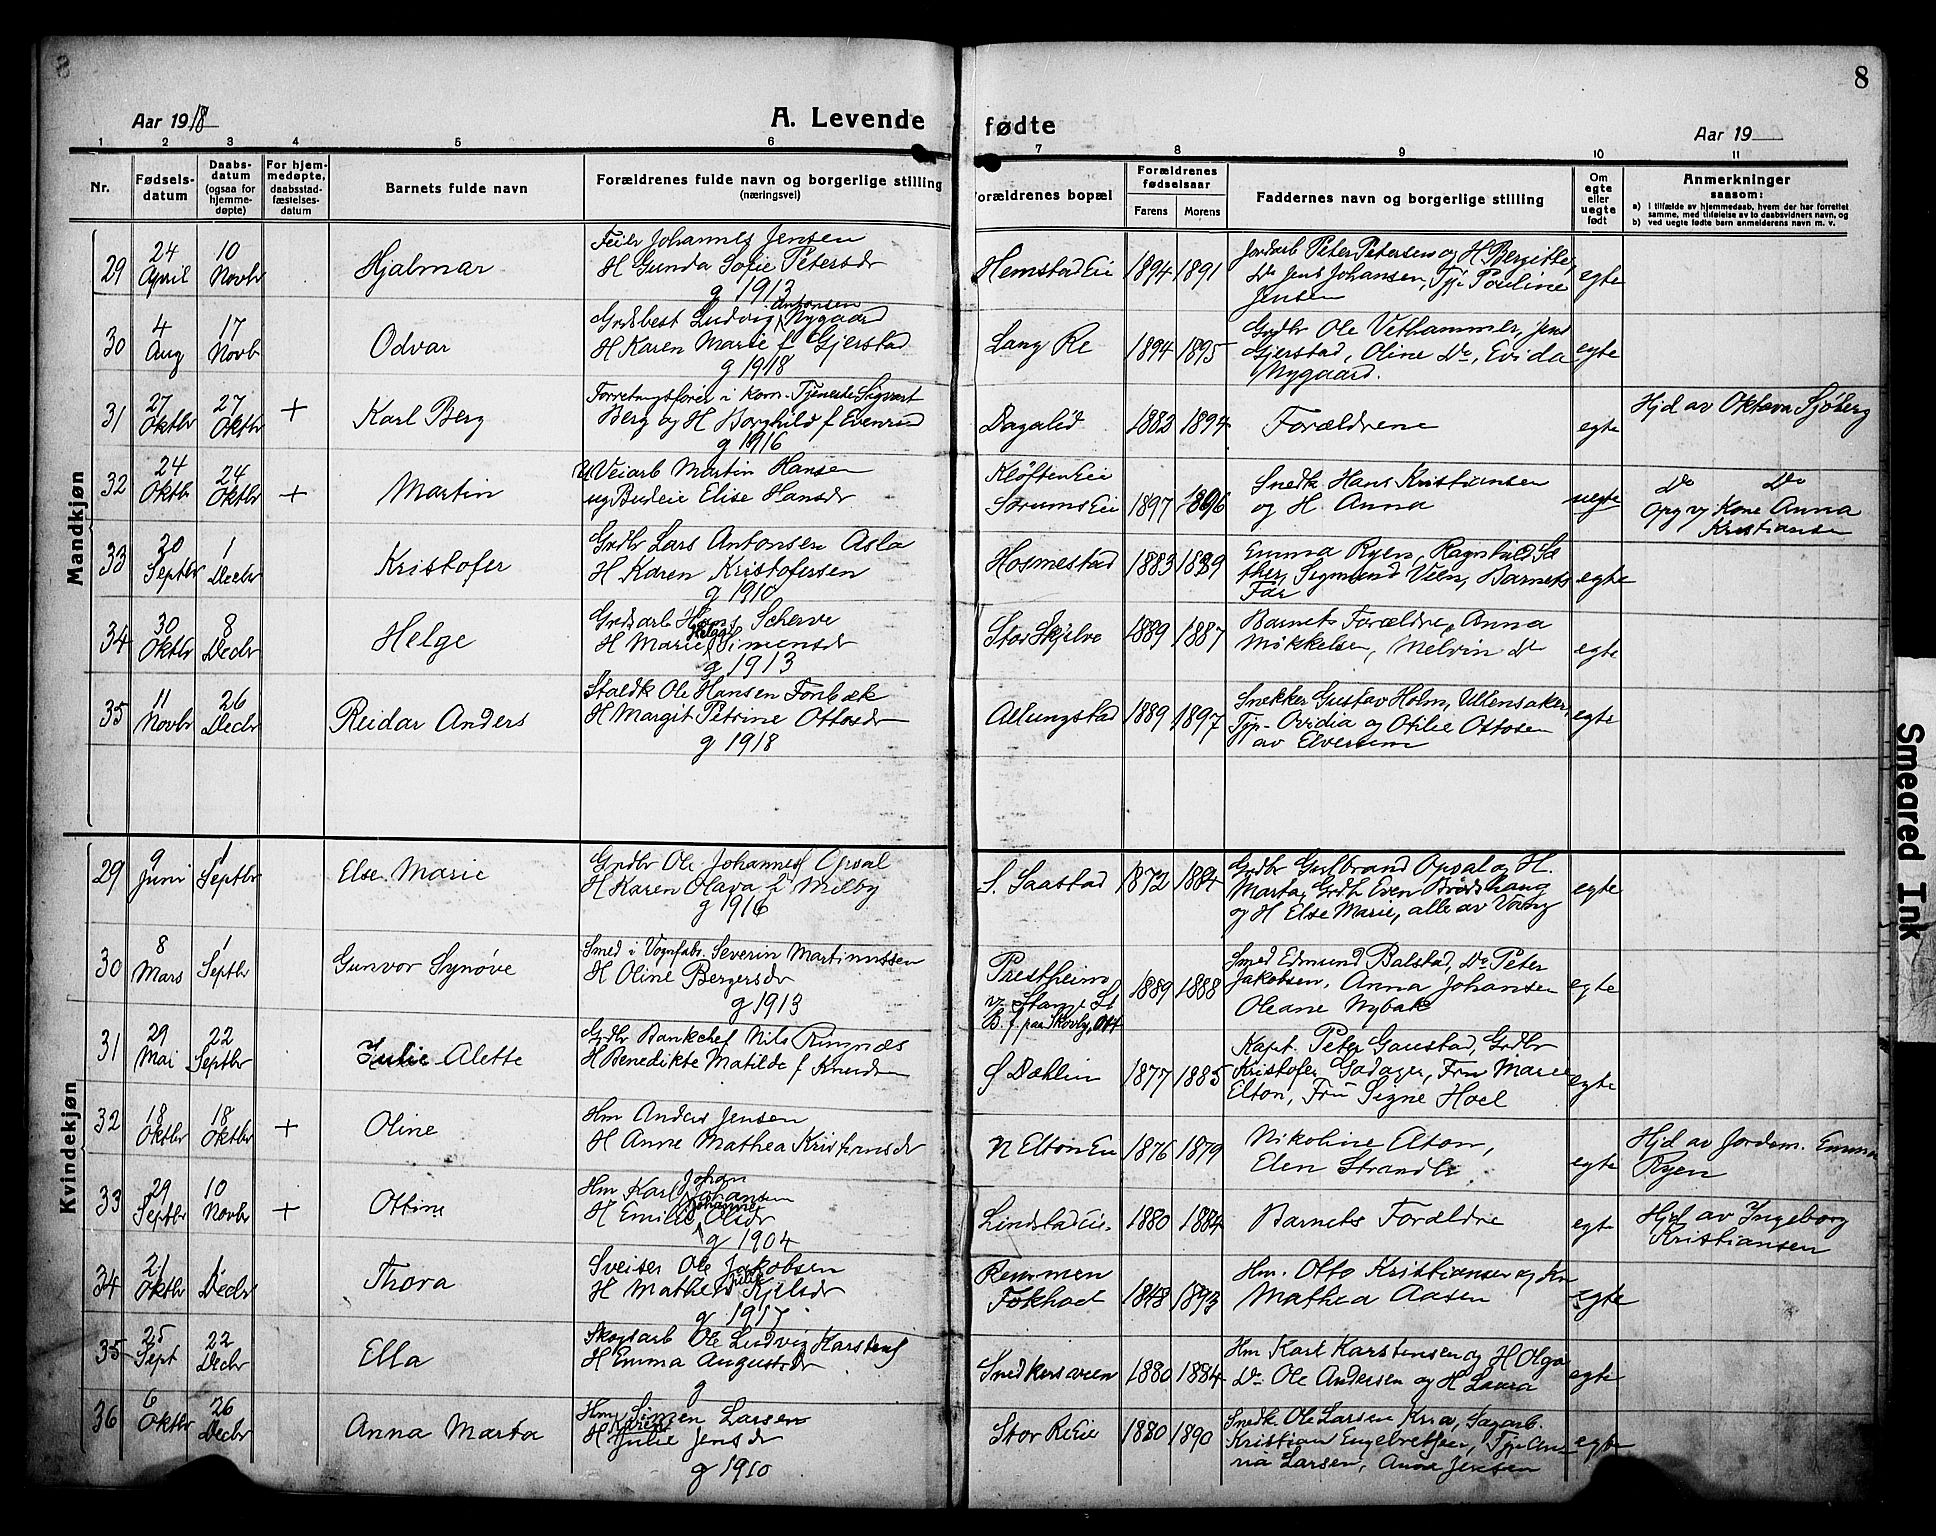 8
8
Aar 1918
A. Levende fødte
Aar 19
1 2 3 4 5 6 7 8 9 10 11
Nr.
Fødsels-
datum
Daabs-
datum
(ogsaa for
hjemme-
døpte)
For hjem-
medøpte,
daabsstad-
fæstelses-
datum
Barnets fulde navn
Forældrenes fulde navn og borgerlige stilling
(næringsvei)
Forældrenes bopæl
Forældrenes
fødselsaar
Farens Morens
Faddernes navn og borgerlige stilling
Om
egte
eller
uegte
født
Anmerkninger
saasom:
a) i tilfælde av hjemmedaab, hvem der har forrettet
samme, med tilføielse av to daabsvidners navn, og
b) ved uegte fødte barn anmelderens navn m. v.
Mandkjøn
29
24
April
10
Novbr
Hjalmar
Feier Johannes Jensen
H Gunda Sofie Petersdr
g 1913
Hemstad Eie
1894 1891
Jordarb Peter Petersen og H Bergitte,
Do Jens Johansen, Tjp Pauline
Jensen
egte
30
4
Aug
17
Novb
Odvar
Antonsen
Grdsbest Ludvig Nygaard
H Karen Marie f Gjerstad
g 1918
Lang Re
1894 1895
Grdbr Ole Vethammer, Jens
Gjerstad, Oline Do, Evida
Nygaard.
egte
31
27
Oktbr
27
Oktbr
+
Karl Berg
Forretningsfører i kom. Tjeneste Sigvart
Berg og H Borghild f Evenrud
g 1916
Dagalid
1882 1894
Forældrene
egte
Hjd av Oktava Sjöberg
32
24
Oktbr
24
Oktbr
+
Martin
Veiarb Martin Hansen
ug Budeie Elise Hansdr
Kløften Eie
Sørums Eie
1897 1896
Snedk. Hans Kristiansen
og H. Anna
uegte
Do Do
Opg v Kone Anna
Kristiansen
33
20
Septbr
1
Decbr
Kristofer
Grdbr Lars Antonsen Asla
H Karen Kristofersen
g 1910
Hosmestad
1883 1889
Emma Ryen, Ragnhild Sæ
ther, Sigmund Veen, Barnets
Far
egte
34
30
Oktbr
8
Decbr
Helge
Grdsarb Hans Scherve
Helga
H Marie Simensdr
g 1913
Stor Skjelve
1889 1887
Barnets Forældre, Anna
Mikkelsen, Melvin Do
egte
35
11
Novbr
26
Decbr
Reidar Anders
Staldk Ole Hansen Fonbæk
H Margit Petrine Ottosdr
g 1918
Allungstad
1889 1897
Snekker Gustav Holm, Ullensaker,
Tjp. Ovidia og Otilie Ottosen
av Elverum
egte
Kvindekjøn
29
9
Juni
1
Septbr
Else Marie
Grdbr Ole Johannes Opsal
H Karen Olava f Milby
g 1916
S. Saastad
1872 1884
Grdbr Gulbrand Opsal og H.
Marta, Grdb Even Brødshaug
og H Else Marie, alle av Vang
egte
30
8
Mars
1
Septbr
Gunvor Synøve
Smed i Vognfabr. Severin Martinussen
H Oline Bergersdr
g 1913
Prestheim
v. Stange St
B. f. paa Skovly, Ott
1889 1888
Smed Edmund Balstad, Do Peter
Jakobsen, Anna Johansen
Oleane Nybak
egte
31
29
Mai
22
Septbr
Julie Alette
Grdbr Bankchef Nils Ringnæs
H Benedikte Matilde f Knudsen
S Dæhlin
1877 1885
Kapt. Peter Gaustad, Grdbr
Kristofer Godager, Fru Marie
Elton, Fru Signe Hoel
egte
32
18
Oktbr
18
Oktbr
+
Oline
Hm Anders Jensen
H Anne Mathea Kristensdr
N Elton Eie
1876 1879
Nikoline Elton,
Elen Strandli
egte
Hjd av Jordem. Emma
Ryen
33
29
Septbr
10
Novbr
+
Ottine
Johan
Hm Karl Johansen
Johanne
H Emilie Olsdr
g 1904
Lindstad Eie
1880 1884
Barnets Forældre
egte
Hjd av Ingeborg
Kristiansen
34
21
Oktbr
1
Decbr
Thora
Sveiser Ole Jakobsen
Julie
H Mathea Kjelsdr
g 1917
Remmen
Fokhol
1848 1893
Hm. Otto Kristiansen og Kn
Mathea Aasen
egte
35
25
Sept
22
Decbr
Ella
Skogsarb Ole Ludvig Karstens
H Emma Augustsdr
g
Snedkersveen
1880 1884
Hm Karl Karstensen og H Olga
Do Ole Andersen og H Laura
egte
36
6
Oktbr
26
Decbr
Anna Marta
Hm Simen Larsen
Karen
H Julie Jensdr
g 1910
Stor Re Eie
1880 1890
Snedk Ole Larsen Kria, Sagarb.
Kristian Engebretsen, Tjp An
na Larsen, Anna Jensen
egte
Smeared Ink